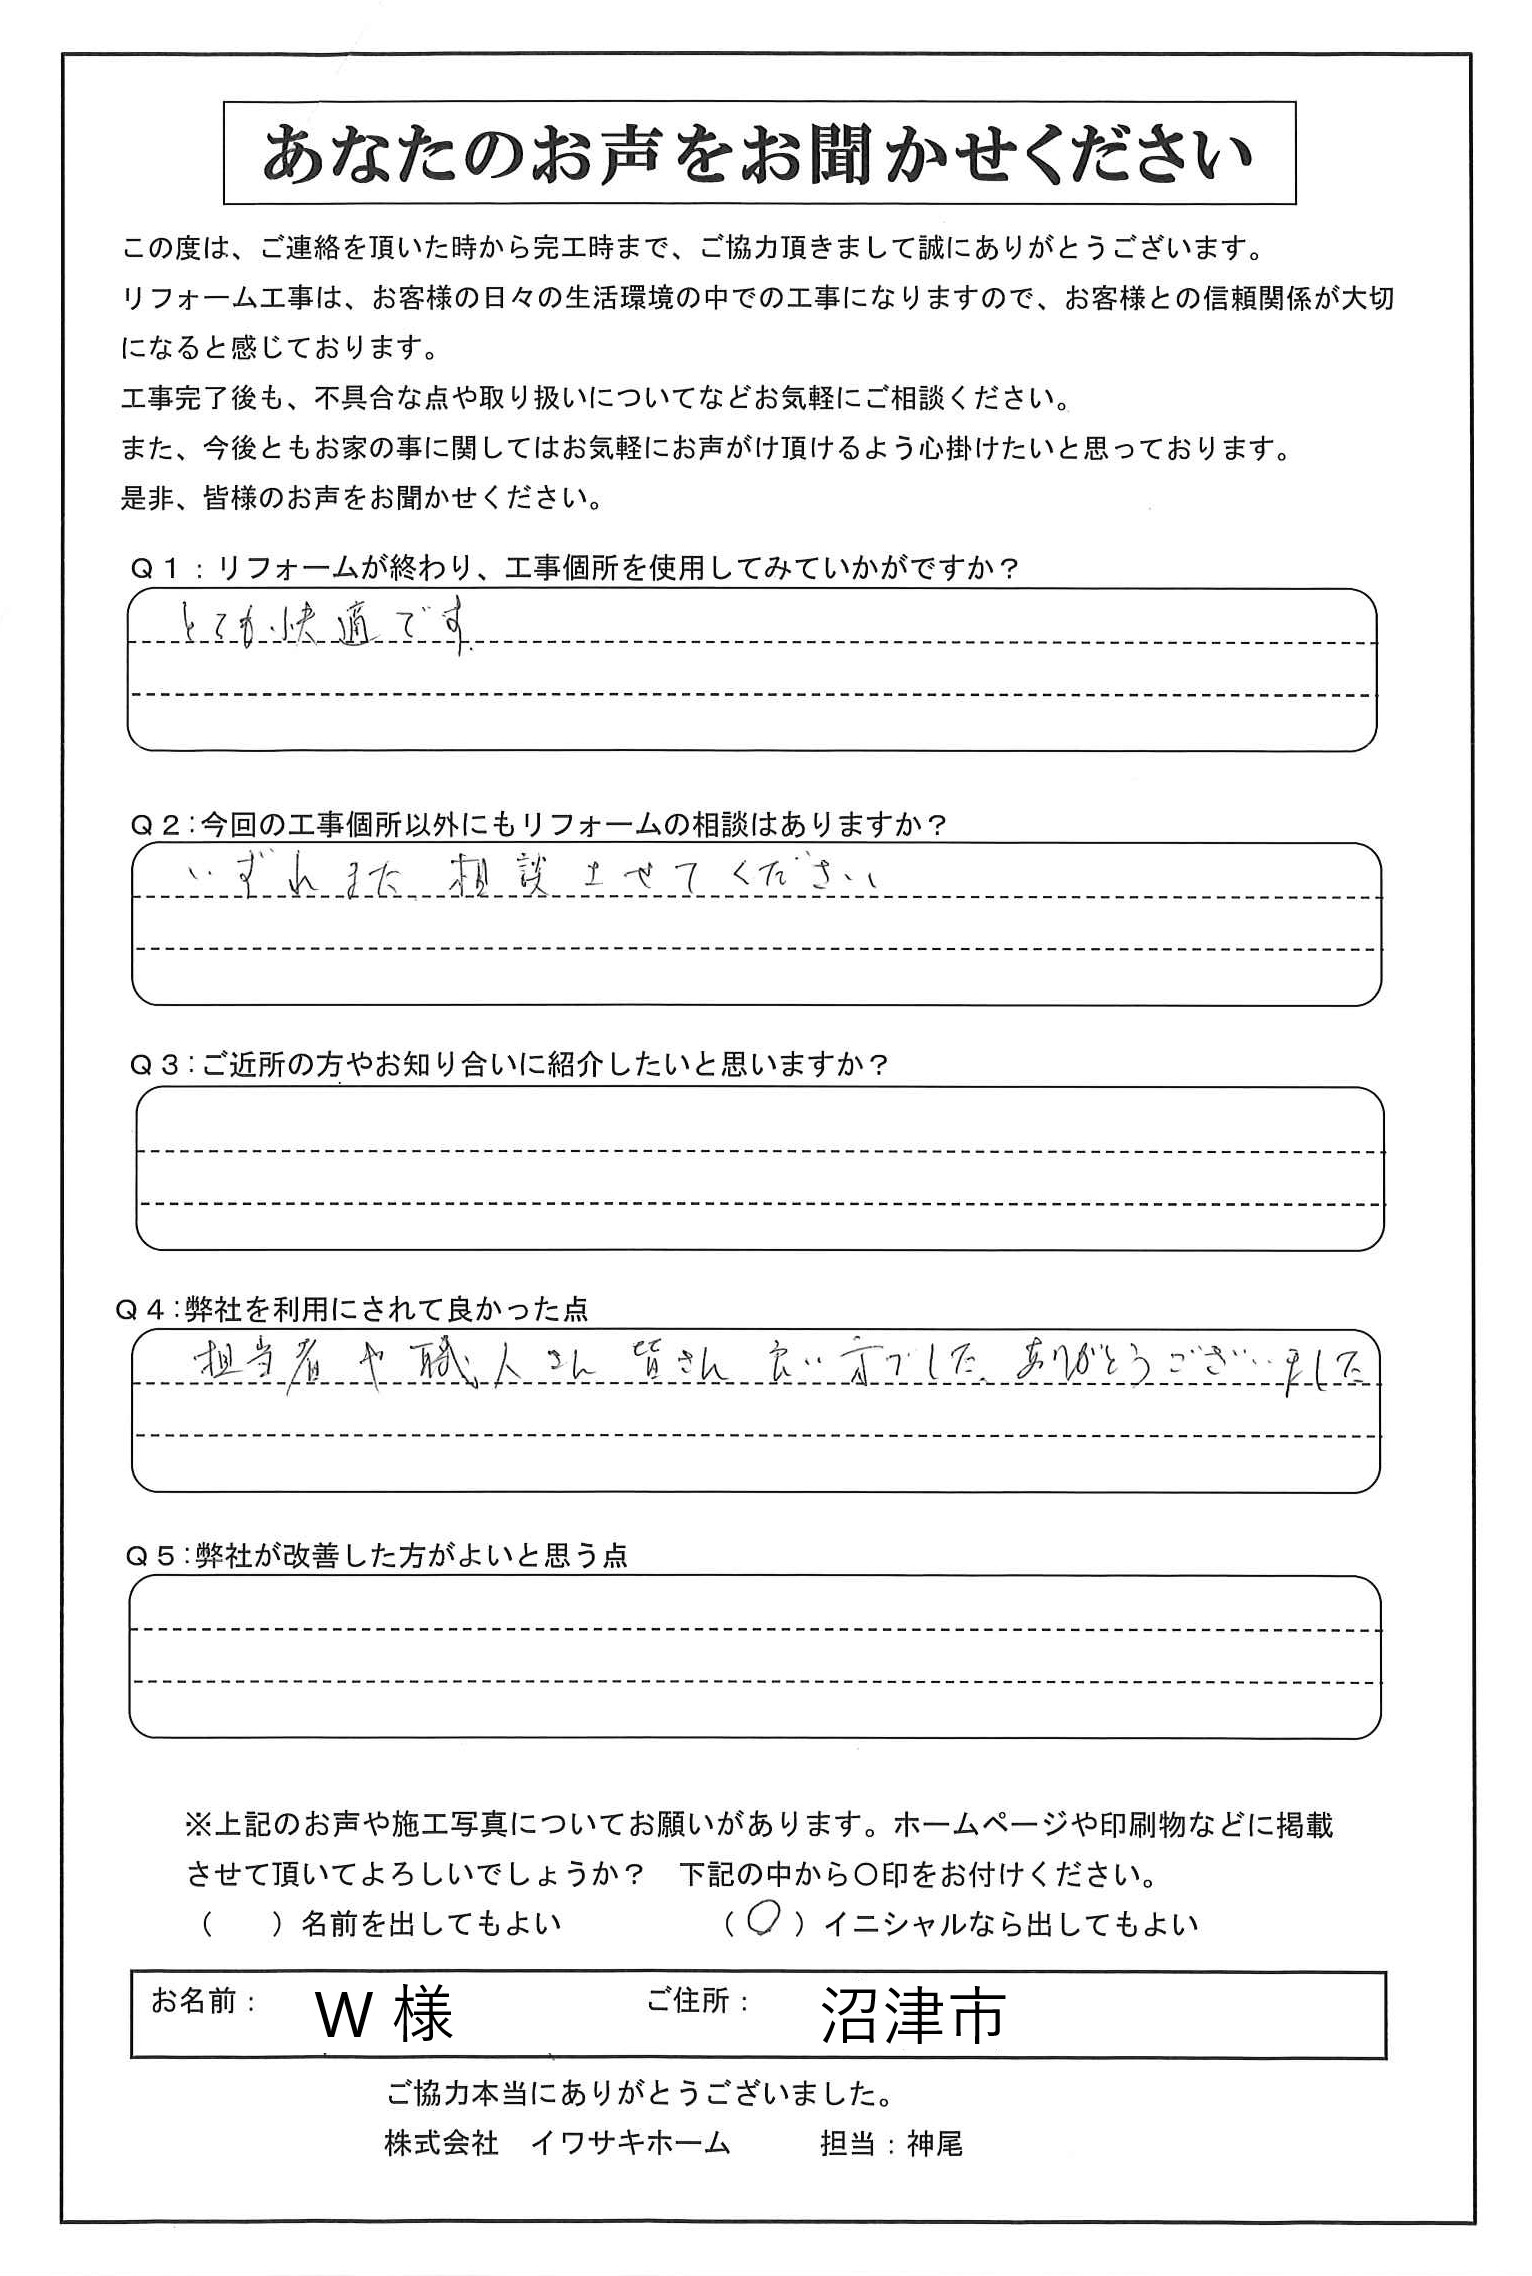 あなたのお声をお聞かせください
この度は、ご連絡を頂いた時から完工時まで、ご協力頂きまして誠にありがとうございます。
リフォーム工事は、お客様の日々の生活環境の中での工事になりますので、お客様との信頼関係が大切
になると感じております。
工事完了後も、不具合な点や取り扱いについてなどお気軽にご相談ください。
また、今後ともお家の事に関してはお気軽にお声がけ頂けるよう心掛けたいと思っております。
是非、皆様のお声をお聞かせください。
Q1：リフォームが終わり、工事個所を使用してみていかがですか？
とても快適です。
Q2：今回の工事個所以外にもリフォームの相談はありますか？
いずれまた相談させてください
Q3：ご近所の方やお知り合いに紹介したいと思いますか？
Q4：弊社を利用にされて良かった点
担当者や職人さん皆さん良い方でした。ありがとうございました
Q5：弊社が改善した方がよいと思う点
※上記のお声や施工写真についてお願いがあります。ホームページや印刷物などに掲載
させて頂いてよろしいでしょうか？　下記の中から〇印をお付けください。
（　　）名前を出してもよい　（〇）イニシャルなら出してもよい
お名前：　W 様　ご住所：　沼津市
ご協力本当にありがとうございました。
株式会社　イワサキホーム　担当：神尾